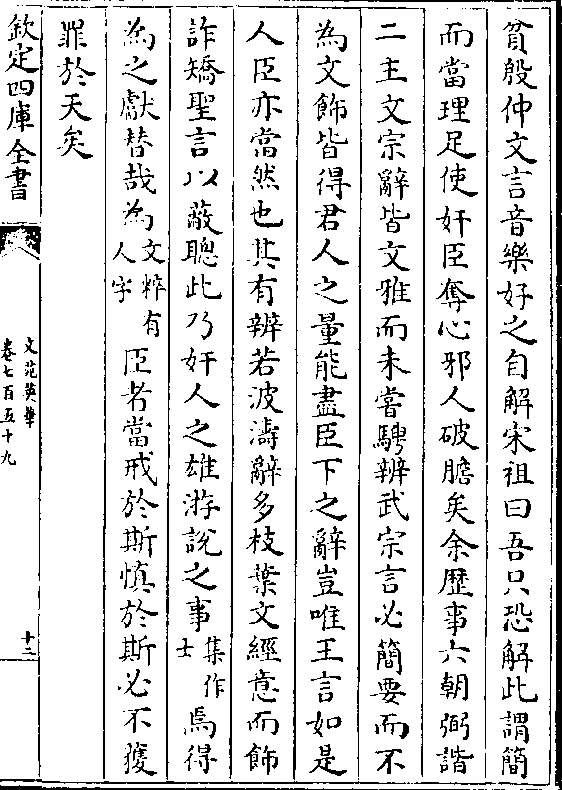 貧殷仲文言音樂好之自解宋祖曰吾只恐解此謂簡
而當理足使奸臣奪心邪人破膽矣余歴事六朝弼諧
二主文宗辭皆文雅而未嘗騁辨武宗言必簡要而不
為文飾皆得君人之量能盡臣下之辭豈唯王言如是
人臣亦當然也其有辨若波濤辭多枝葉文經意而飾
詐矯聖言以蔽聰此乃奸人之雄游說之事集作士焉得
為之獻替哉為文粹有人字臣者當戒於斯慎於斯必不獲
罪於天矣
欽定四庫全書
文苑英華
卷七百五十九
十二